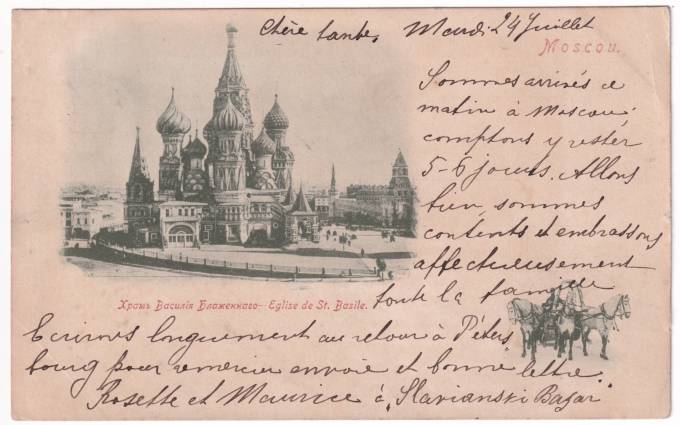 Chère tante, Mardi 24 Juillet
Moscou.
Sommes arrivés ce
matin à Moscou,
comptons y rester
5-6 jours. Allons
bien, sommes
contents et embrassons
affectueusement
toute la famille
Храмъ Василія Блаженнаго - Eglise de St. Basile.
Ecrirons longuement au retour à Péters
bourg pour remercier envoie et bonne lettre.
Rosette et Maurice à „Slavianski Bazar"